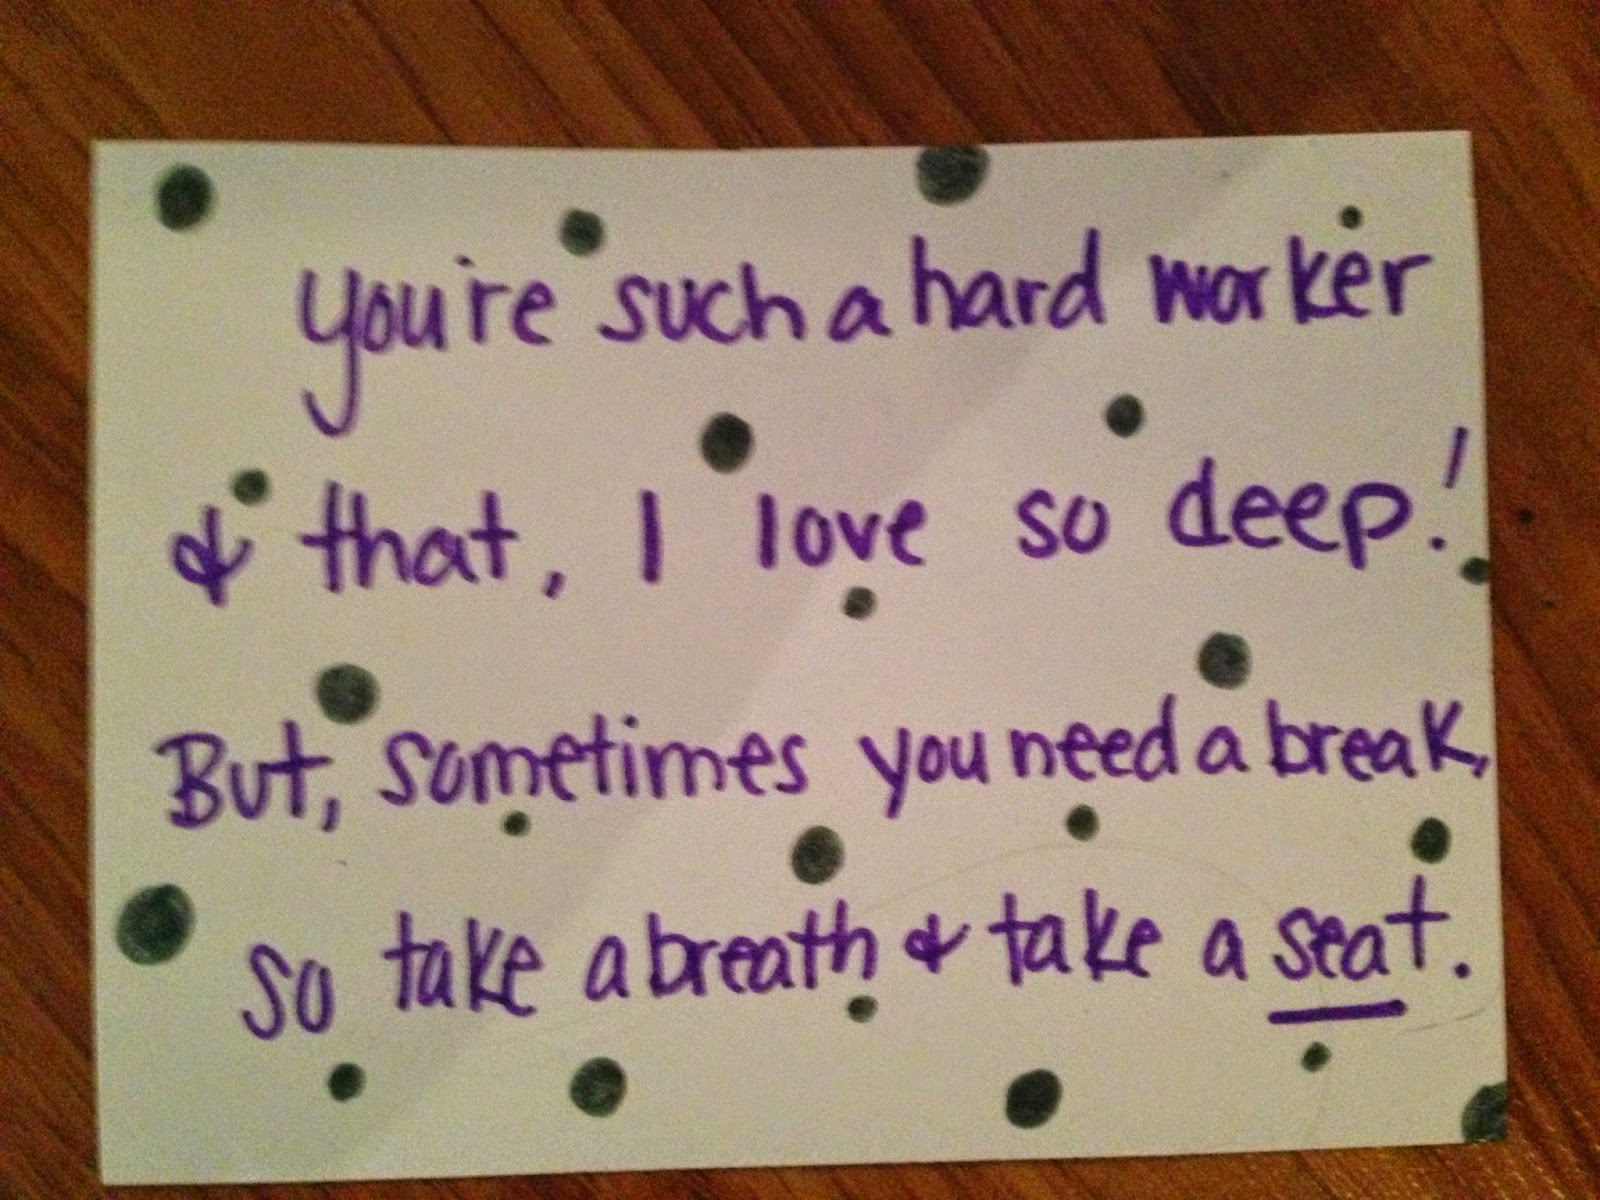 you're such a hard worker
& that, I love so deep!
But, sometimes you need a break,
so take a breath & take a seat.